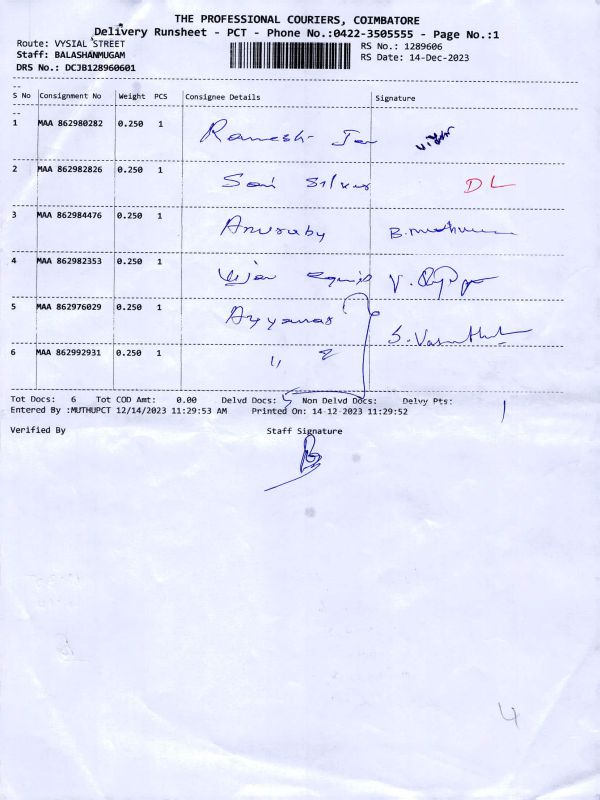 THE PROFESSIONAL COURIERS, COIMBATORE
Delivery Runsheet - PCT - Phone No.:0422-3505555 - Page No.:1
Route: VYSIAL STREET RS No.: 1289606
Staff: BALASHANMUGAM RS Date: 14-Dec-2023
DRS No.: DCJB128960601
S No Consignment No Weight PCS Consignee Details Signature
1 MAA 862980282 0.250 1 Ramesh
2 MAA 862982826 0.250 1 DL
3 MAA 862984476 0.250 1
4 MAA 862982353 0.250 1
5 MAA 862976029 0.250 1 Ayyanar
6 MAA 862992931 0.250 1
Tot Docs: 6 Tot COD Amt: 0.00 Delvd Docs: 5 Non Delvd Docs: Delvy Pts: 1
Entered By :MUTHUPCT 12/14/2023 11:29:53 AM Printed On: 14-12-2023 11:29:52
Verified By Staff Signature
4